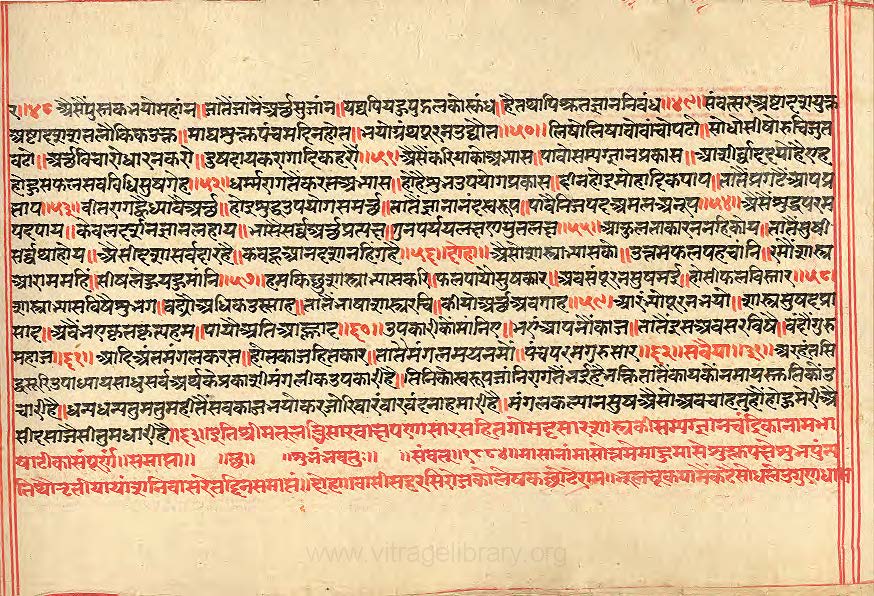 र॥४८ ऐसैंपुस्तकनयोमहांन॥जातैंजानैंअर्थसुजांन॥यद्यपियहपुद्गलकोस्कंध॥हैतथापिश्रुतज्ञाननिबंध॥४९॥संवत्सरअष्टादशयुक्त
अष्टादशशतलौकिकजुक्त॥माघशुक्लपंचमदिनहोत॥भयोग्रंथपूरनउद्योत॥५०॥लिषोलिषावोवांचोपढो॥सोधोसीषोरुचिजुत
बढो॥अर्थविचारोधारनकरो॥दुषदायकरागादिकहरो॥५१॥ऐसैंकरियाकोअभ्यास॥पावोसम्यग्ज्ञानप्रकास॥
होइसफलसबविधिसुषगेह॥५२॥धर्म्मरागतैंकरतअभ्यास॥होहैशुभउपयोगप्रकास॥हीनहोइमोहादिकपाप॥तातैंप्रगटेआपप्र
ताप॥५३॥वीतरागह्वैध्यावैअर्थ॥होइशुद्धउपयोगसमर्थ॥तातैंज्ञानानंदस्वरूप॥पावैनिजपदअमलअनूप॥५४॥ऐसैंशुद्धपरम
पदपाय॥केवलदर्शनज्ञानलहाय॥भासैंसर्वअर्थप्रत्यक्ष॥गुनपर्ययलक्षणयुतलक्ष॥५५॥आकुलताकारननहिकोय॥तातैंसुषी
सर्वथाहोय॥ऐसीदशासर्वदारहै॥कबहूआनदशानहिंगहै॥५६॥दोहा॥ऐसोशास्त्राभ्यासको॥उत्तमफलपहचांनि॥रमोंशास्त्र
आराममहिं॥सीषलेहुयहमांनि॥५७॥हमकिछुशास्त्राभ्यासकरि॥फलपायोसुषकार॥अबसंपूरनसुषमई॥होसीफलविस्तार॥५८
शास्त्राभ्यासविषैशुभग॥बढ्योअधिकउत्साह॥तातैंभाषाशास्त्ररचि॥कीयोअर्थअवगाह॥५९॥आरंभ्योपूरनभयो॥शास्त्रसुषदप्रा
साद॥अबभएकृतकृत्यहम॥पायोअतिआह्लाद॥६०॥उपकारीकोमानिए॥भएंआपनोंकाज॥तातैंइसअवसरविषै॥वंदौंगुरु
महाज॥६१॥आदिअंतमंगलकरत॥होतकाजहितकार॥तातैंमंगलमयनमौं॥पंचपरमगुरुसार॥६२॥सवैया॥३१॥अरहंतसि
द्धसूरिउपाध्यायसाधुसर्वअर्थकेप्रकाशीमंगलीकउपकारीहै॥तिनिकोस्वरूपजांनिरागतैंभईहैभक्तितातैंकायकोंनमायस्तुतिकोंउ
चारीहै॥धन्यधन्यतुमतुमहीतैंसबकाजभयोकरजोरिवारंवारवंदनाहमारीहै॥मंगलकल्यानसुषऐसोअबचाहतुहौंहोहुमेरीऐ
सीदसाजैसीतुमधारीहै॥६३॥इतिश्रीमतलब्धिसारवाक्षपणासारसहितगोमट्टसारशास्त्रकीसम्यग्ज्ञानचंद्रिकानामभा
षाटीकासंपूर्णा॥समाप्ता॥ ॥छ॥ ॥शुभंभवतु॥ ॥संवत्॥१८८४॥मासानांमासोत्तमेमासेशुक्लपक्षेशुभपुंन्य
तिथौतृतीयायांशनिवासरे
www.vitragelibrary.org